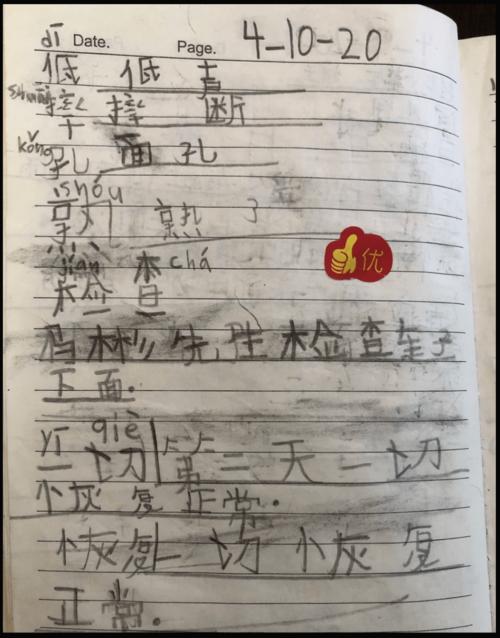 dī Date. Page. 4-10-20
低 低 声
shuāi 摔 摔 断
kǒng 孔 面孔
shóu
熟 熟 了
jiǎn chá
检 查
优
杉先生检查车子
下面.
yī qiè
一切 第二天一切
恢复正常.
恢复 一切恢复
正常.